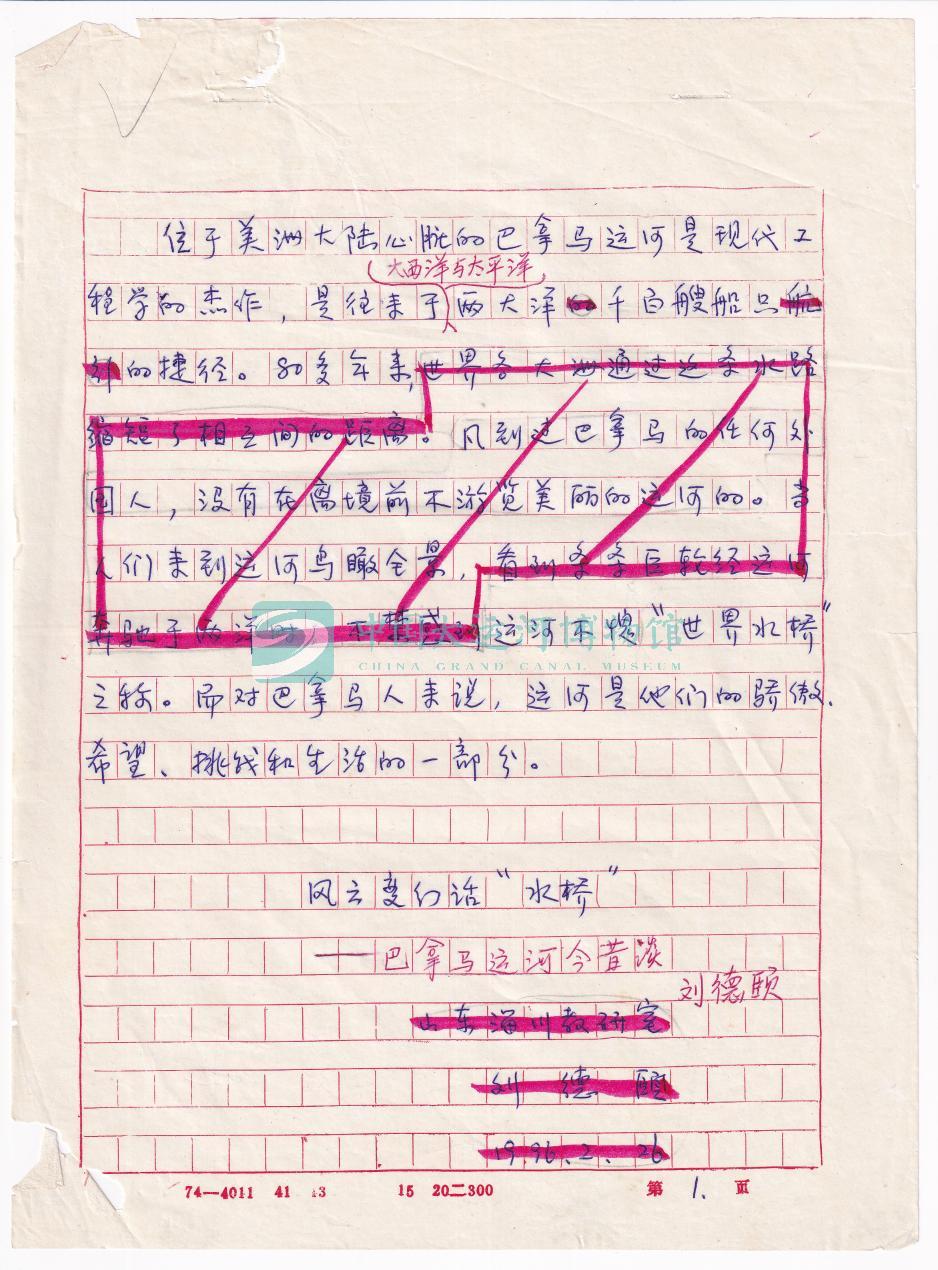 位于美洲大陆心脏的巴拿马运河是现代工
大西洋与太平洋
程学的杰作，是往来于两大洋的千百艘船只航
行的捷径。80多年来，世界各大洲通过这条水路
缩短了相互间的距离。凡到过巴拿马的任何外
国人，没有在离境前不游览美丽的运河的。当
人们来到运河鸟瞰全景，看到条条巨轮经运河
奔驰于两洋时，不禁感到运河不愧“世界水桥”
之称。而对巴拿马人来说，运河是他们的骄傲、
希望、挑战和生活的一部分。
中国大运河博物馆
CHINA GRAND CANAL MUSEUM
风云变幻话“水桥”
——巴拿马运河今昔谈
刘德颐
山东淄川教研室
刘德颐
1996.2.26
74—4011 41 13 15 20二300 第1.页